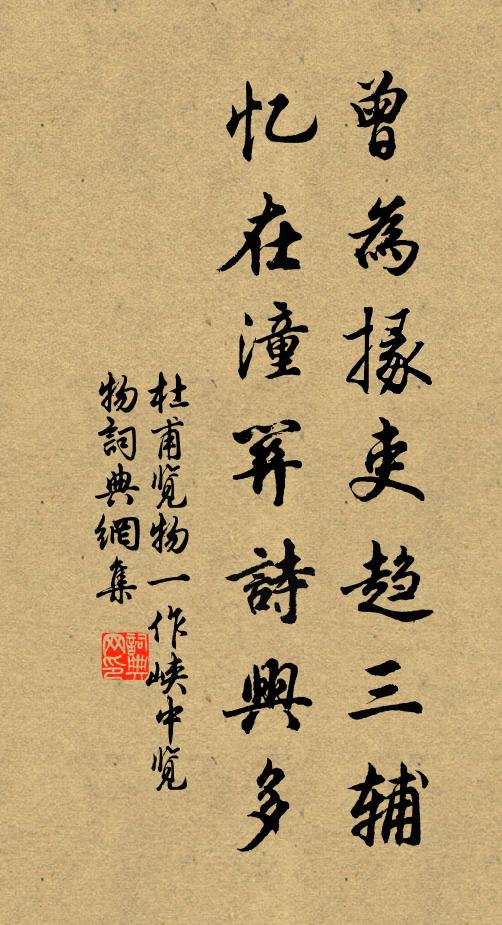 曾為掾吏趋三辅
忆在潼関詩興多
杜甫览物一作峡中览
物詞典網集
詞典
网印